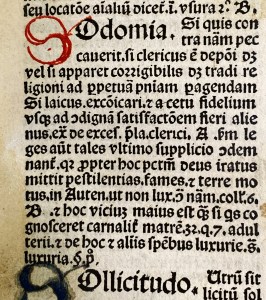 seu locatõe aĩaliũ dicet̃. ı̃. vsura 2ͫ. B.
Sodomia. Si quis con
tra nãm pec
cauerit. si clericus ẽ depõi dʒ
vel si apparet corrigibilis dʒ tradi re
ligioni ad ꝑpetuã pn̄iam ꝑagendam
Si laicus. excõicari. ⁊ a cetu fidelium
vsqꝫ ad ↄdignã satisfactõem fieri alie
nus. ex̃ de exces. p̱la. clerici. A. ſm le
ges aũt tales vltimo supplicio ↄdem
nanť. qꝛ ꝓpter hoc pctm̃ deus iratus
mittit pestilentias. fames. ⁊ terre mo
tus. in Auten. ut non lux. ↄ̃. nãm. coll. 6.
B. ⁊ hoc viciuʒ maius est qʒ si qs co
gnosceret carnalit̃ matrẽ. 32. q. 7. adul
terii. ⁊ de hoc ⁊ aliis spẽbus luxurie. s̃.
luxuria. §. p̊.
Sollicitudo. Utrũ sit
licitũ sol